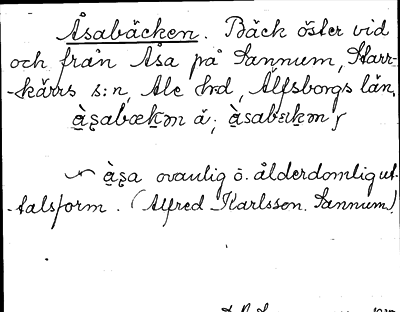 Åsabäcken. Bäck öster vid
och från Åsa på Sannum, Starr-
-kärrs s:n, Ale hrd, Älfsborgs län.
à̱sabækəṇ å; à̱sabɛkəṇ
~ à̱sa ovanlig o. ålderdomlig ut-
-talsform. (Alfred Karlsson. Sannum)